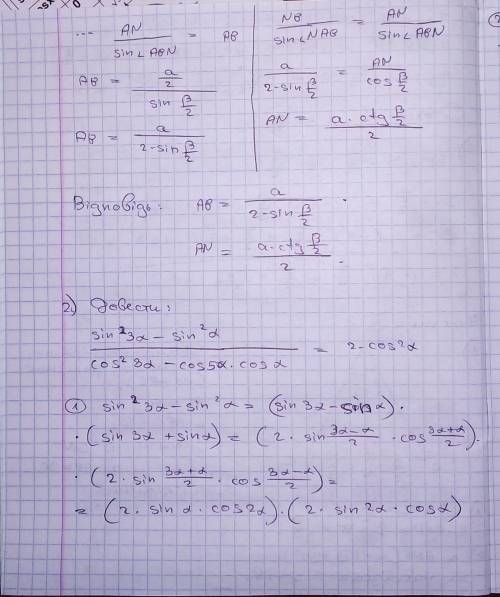 ... AN / sin∠ABN = AB
AB = (a/2) / (sin β/2)
AB = a / (2-sin β/2)
NB / sin∠NAB = AN / sin∠ABN
a / (2-sin β/2) = AN / (cos β/2)
AN = (a · ctg β/2) / 2
Відповідь: AB = a / (2-sin β/2) .
AN = (a·ctg β/2) / 2 .
2) Довести:
(sin²3α - sin²α) / (cos²3α - cos5α · cosα) = 2-cos2α
① sin²3α - sin²α = (sin3α - sinα) ·
· (sin3α + sinα) = (2 · sin (3α-α)/2 · cos (3α+α)/2) ·
· (2 · sin (3α+α)/2 · cos (3α-α)/2) =
= (2 · sin α · cos2α) · (2 · sin2α · cosα)